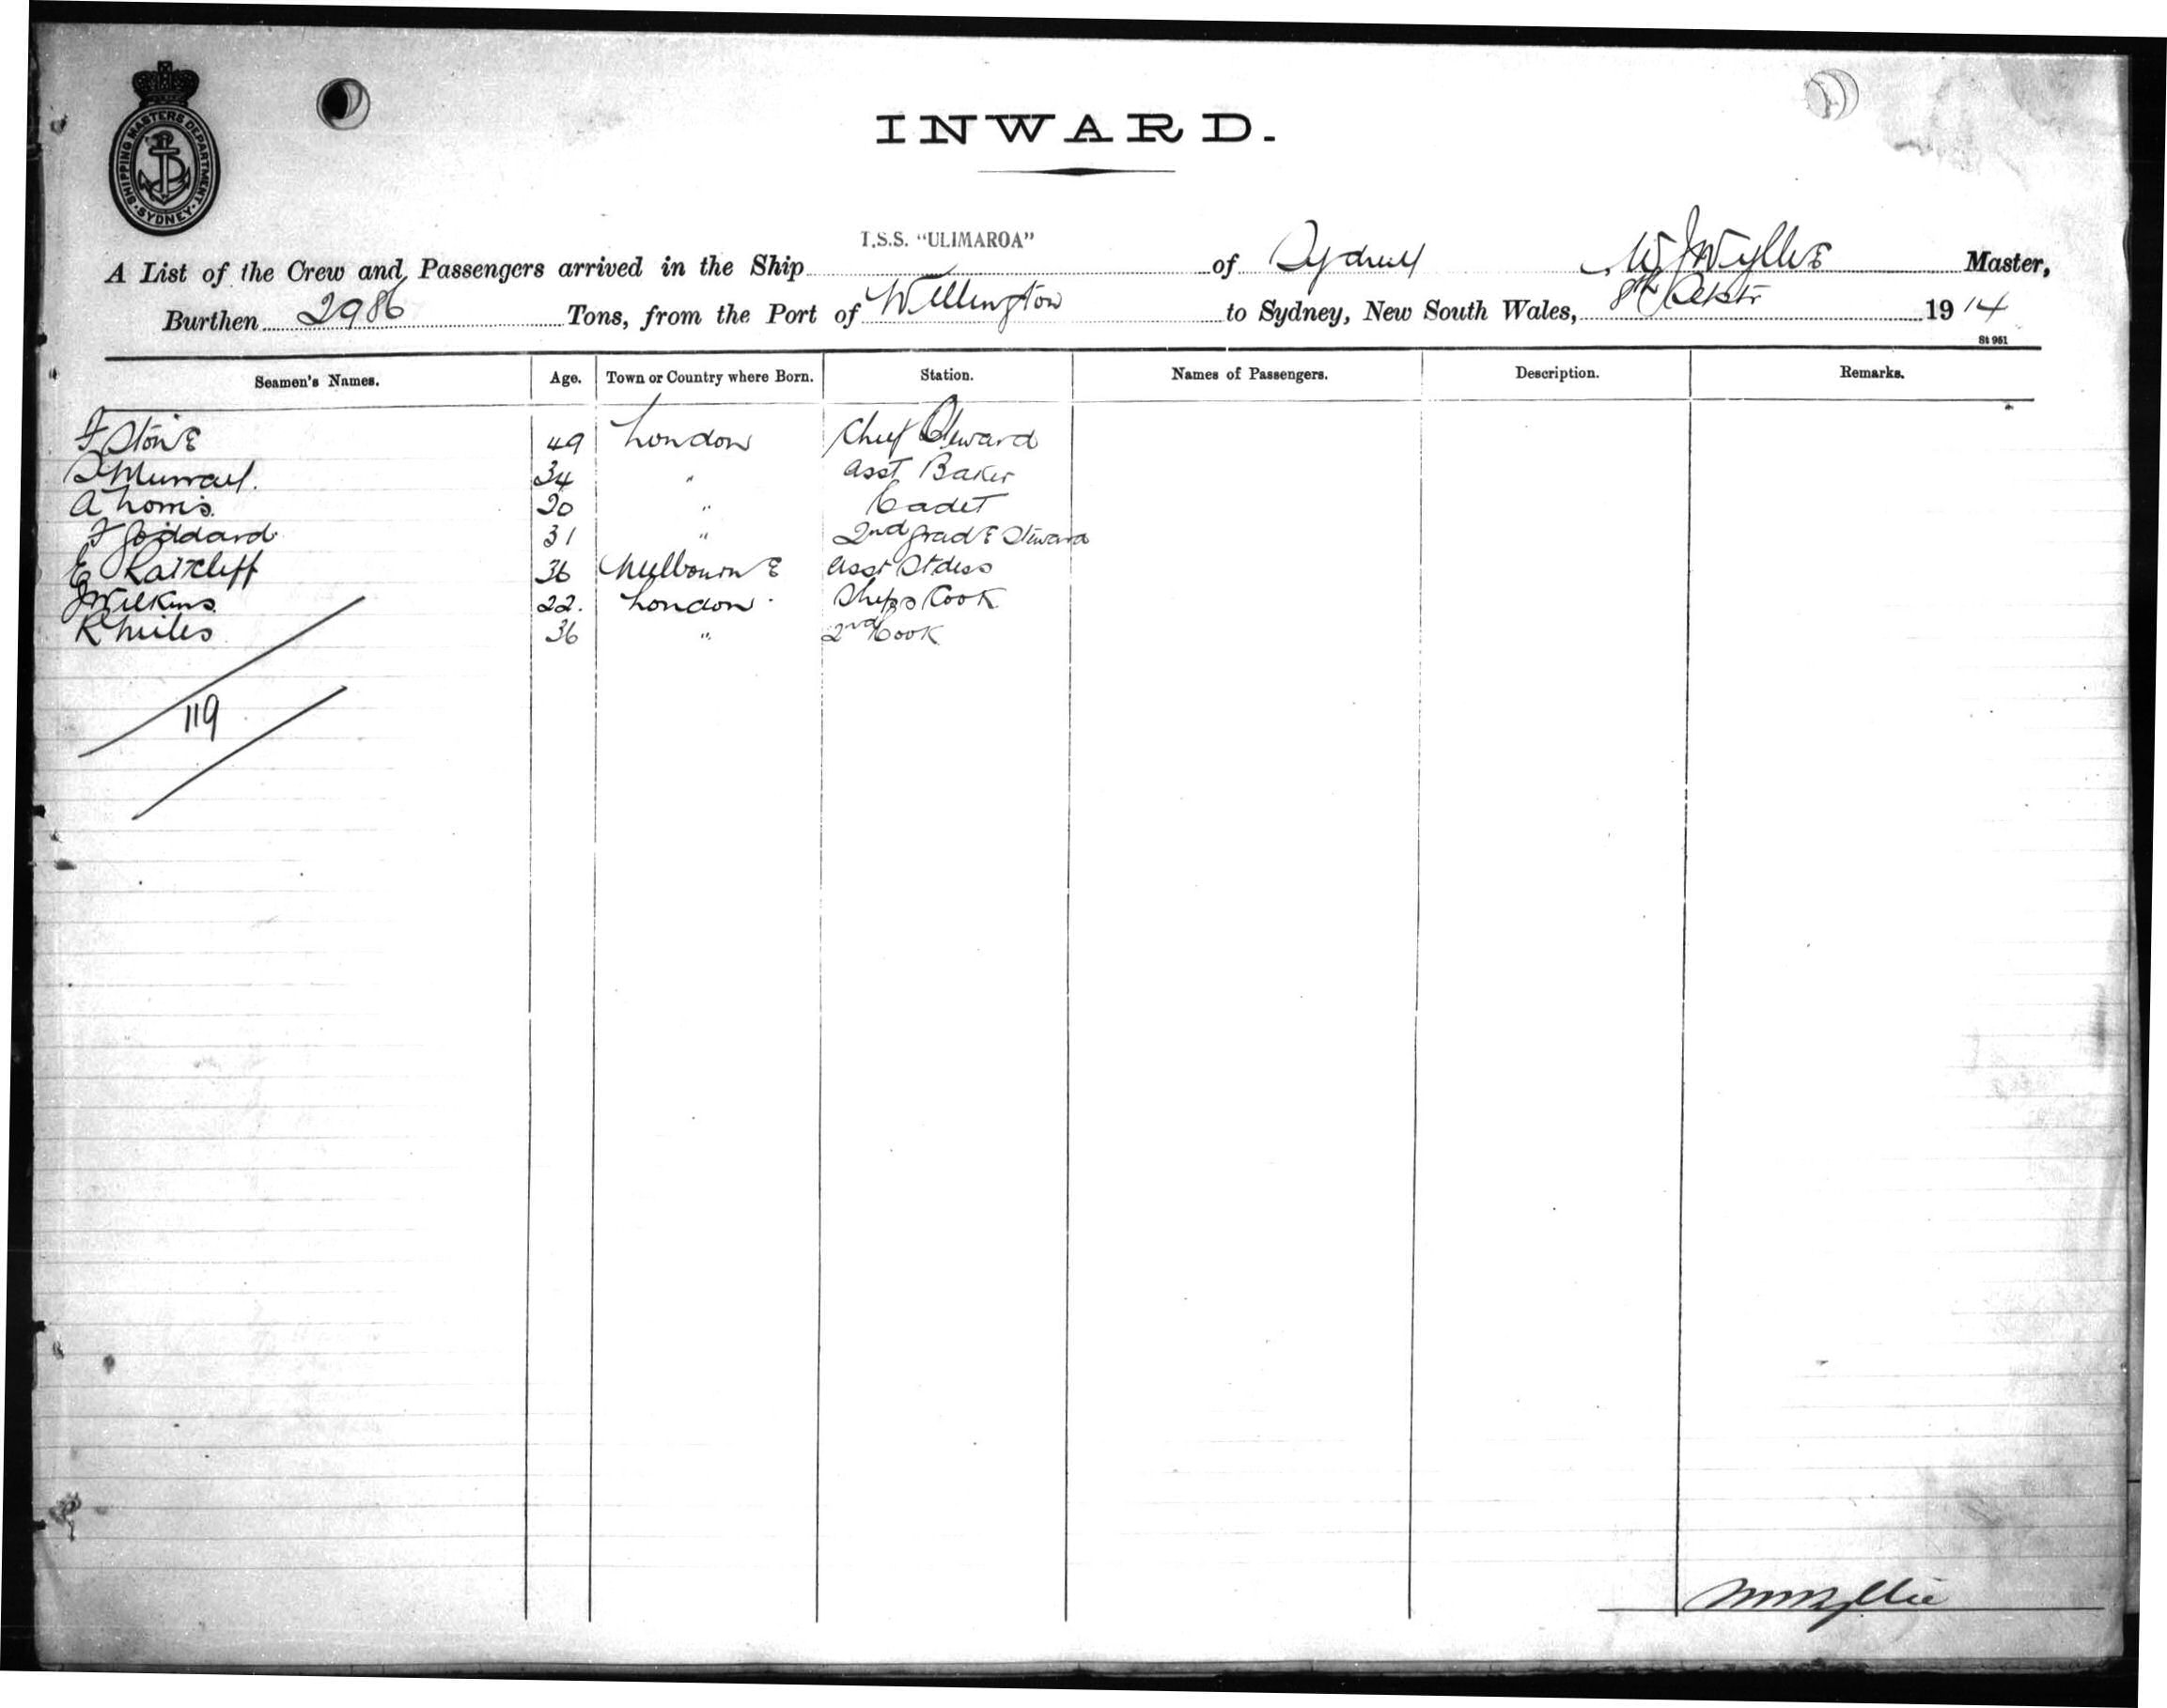 SHIPPING MASTERS DEPARTMENT
SYDNEY
INWARD.
T.S.S. "ULIMAROA"
A List of the Crew and Passengers arrived in the Ship of Sydney W J Wyllie Master,
Burthen 2986 Tons, from the Port of Wellington to Sydney, New South Wales, 8th 1914
St 951
Seamen's Names. Age. Town or Country where Born. Station. Names of Passengers. Description. Remarks.
F Stone 49 London Chief Steward
Murray. 34 " Asst Baker
A 20 " Cadet
F Goddard 31 " 2nd grade Steward
E Ratcliff 36 Melbourne Asst Stdess
J Wilkins 22. London. Ships Cook
R Miles 36 " 2nd Cook
119
Wyllie